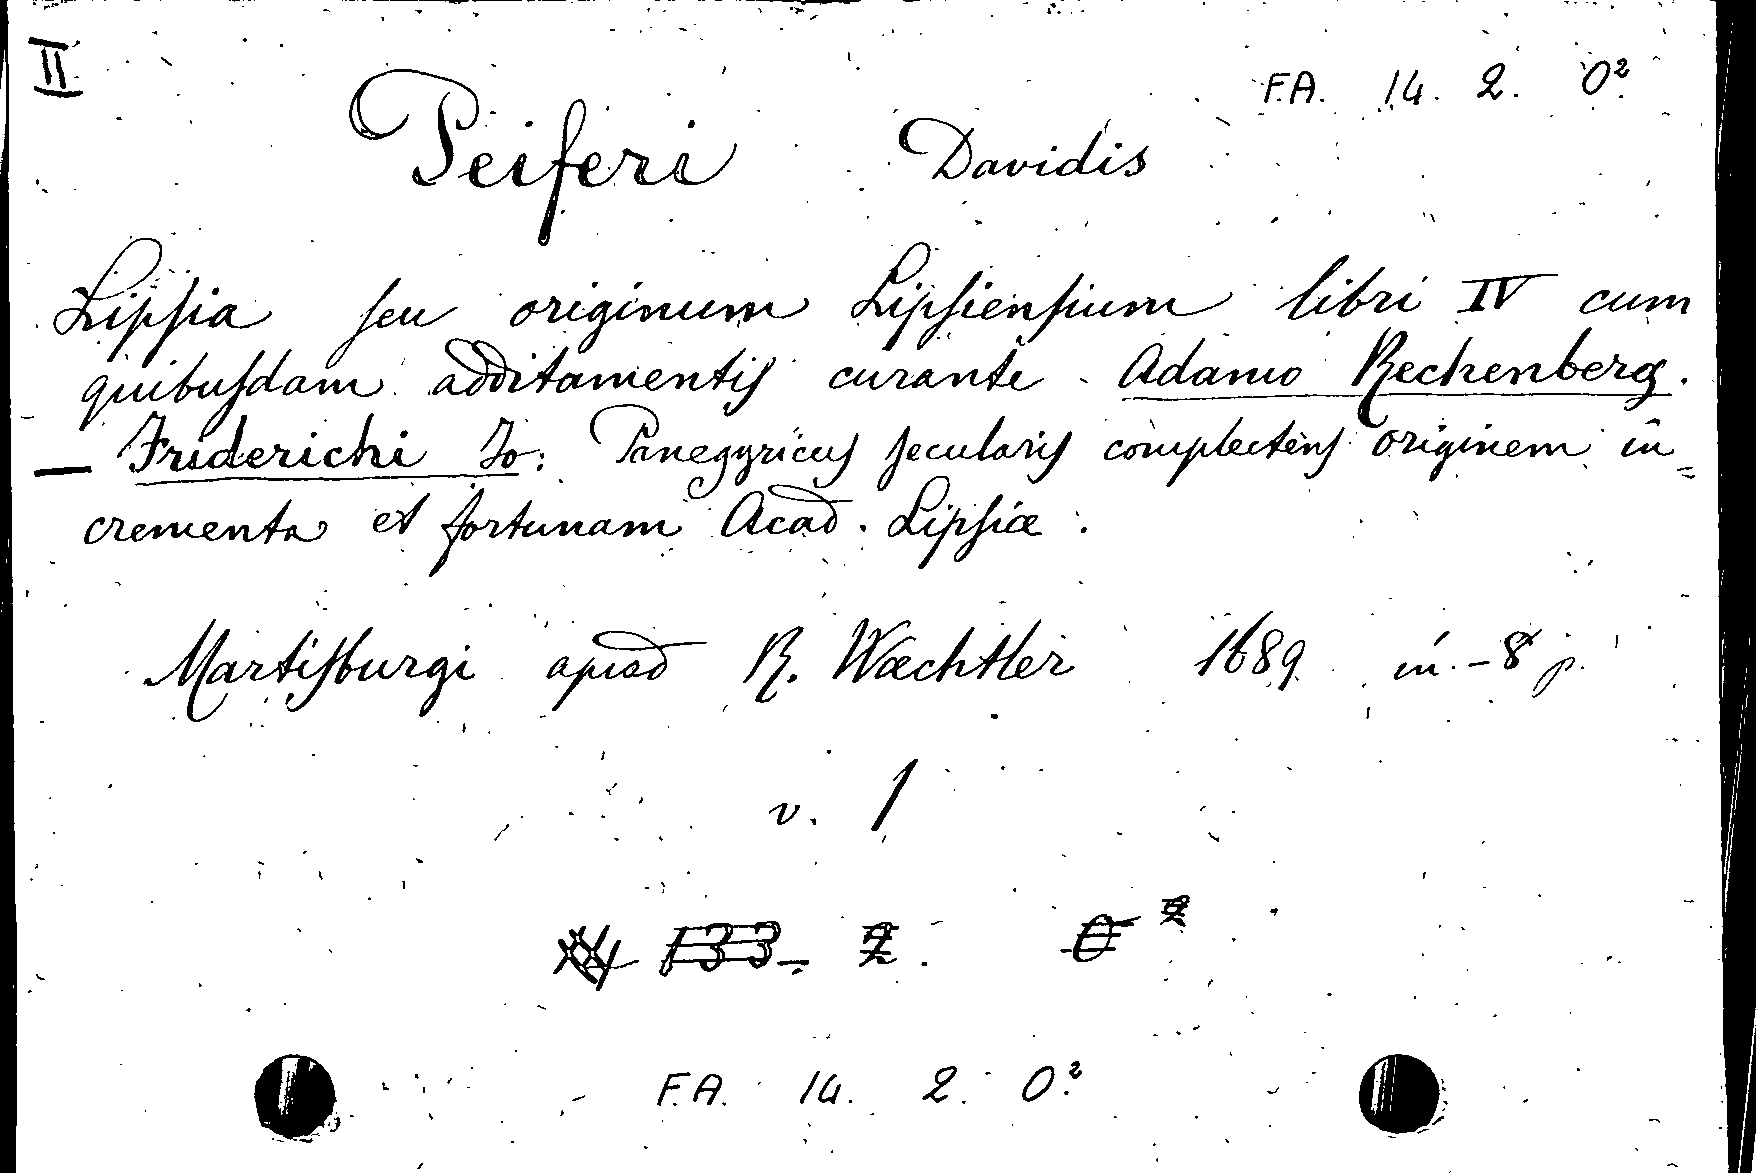 II
F.A. 14. 2. O²
Peiferi Davidis
Lipſia ſeu originum Lipſienſium libri IV cum
quibuſdam additamentiſ curante Adamo Rechenberg.
— Friderichi Jo: Panegyricuſ ſeculariſ complectenſ originem in=
crementa et fortunam Acad. Lipſiæ.
Martiſburgi apud R. Wæchtler 1689 in-8 p.
v. 1
XY 133_ 2. O²
F.A. 14. 2. O²